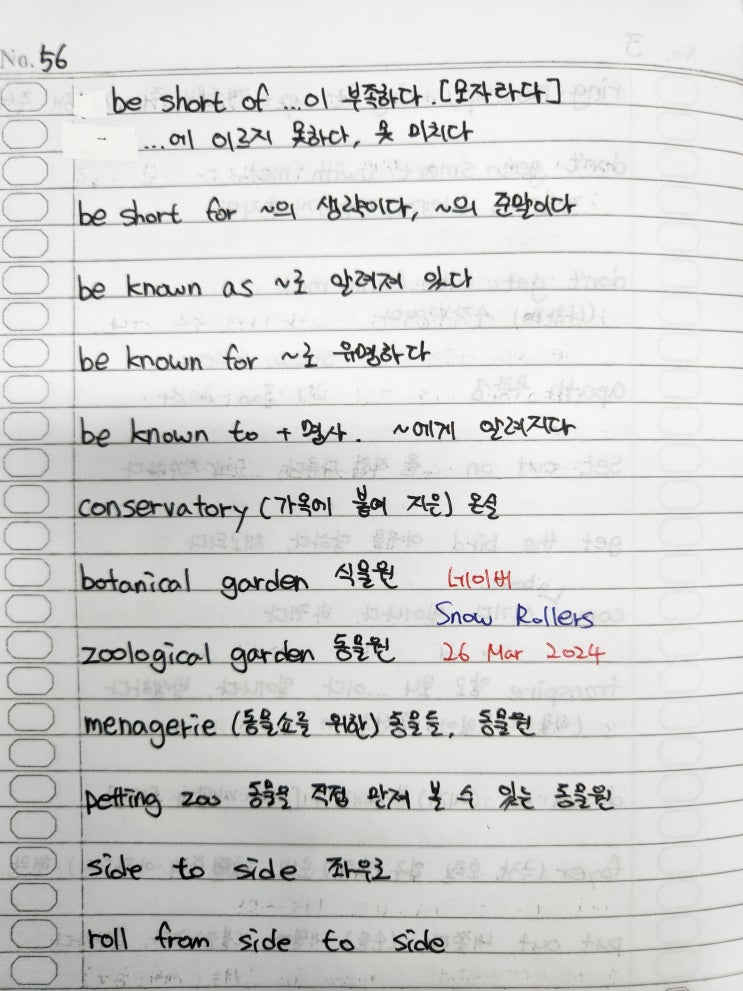 No. 56
be short of ...이 부족하다.[모자라다]
...에 이르지 못하다, 못 미치다
be short for ~의 생략이다, ~의 준말이다
be known as ~로 알려져 있다
be known for ~로 유명하다
be known to + 명사. ~에게 알려지다
conservatory (가옥에 붙여 지은) 온실
botanical garden 식물원 네이버
Snow Rollers
zoological garden 동물원 26 Mar 2024
menagerie (동물쇼를 위한) 동물들, 동물원
petting zoo 동물을 직접 만져 볼 수 있는 동물원
side to side 좌우로
roll from side to side